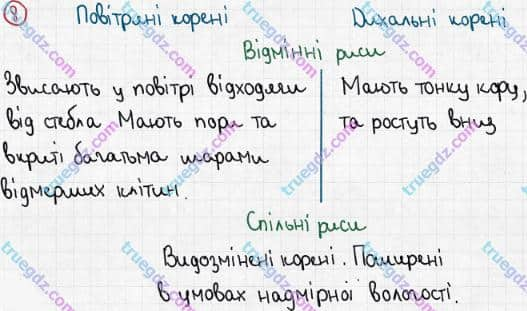 8 Повітряні корені Дихальні корені
Відмінні риси
Звисають у повітрі відходячи
від стебла. Мають пори та
вкриті багатьма шарами
відмерших клітин.
Мають тонку кору,
та ростуть вниз
Спільні риси
Видозмінені корені. Поширені
в умовах надмірної вологості.
truegdz.com